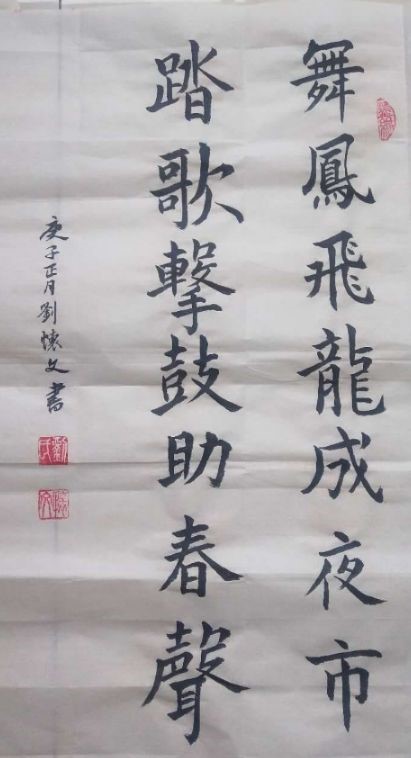 舞鳳飛龍成夜市
踏歌擊鼓助春聲
庚子正月劉懷文書